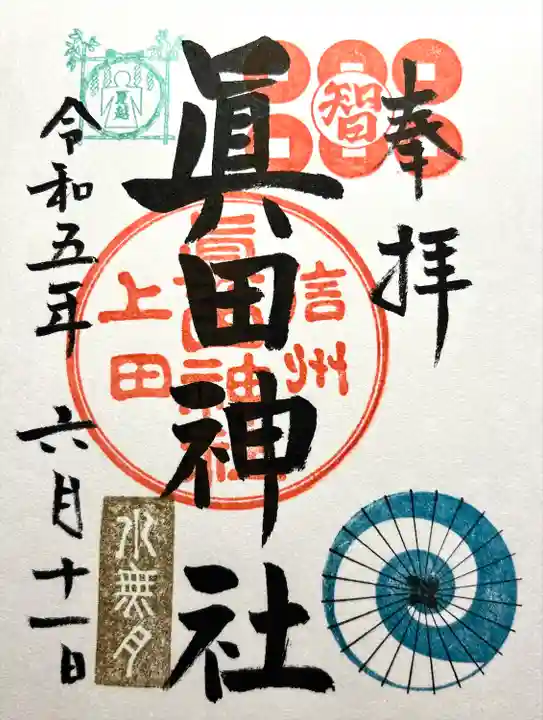 奉拝
智
眞田神社
信州
眞田神社
上田
水無月
夏越
令和五年 六月十一日